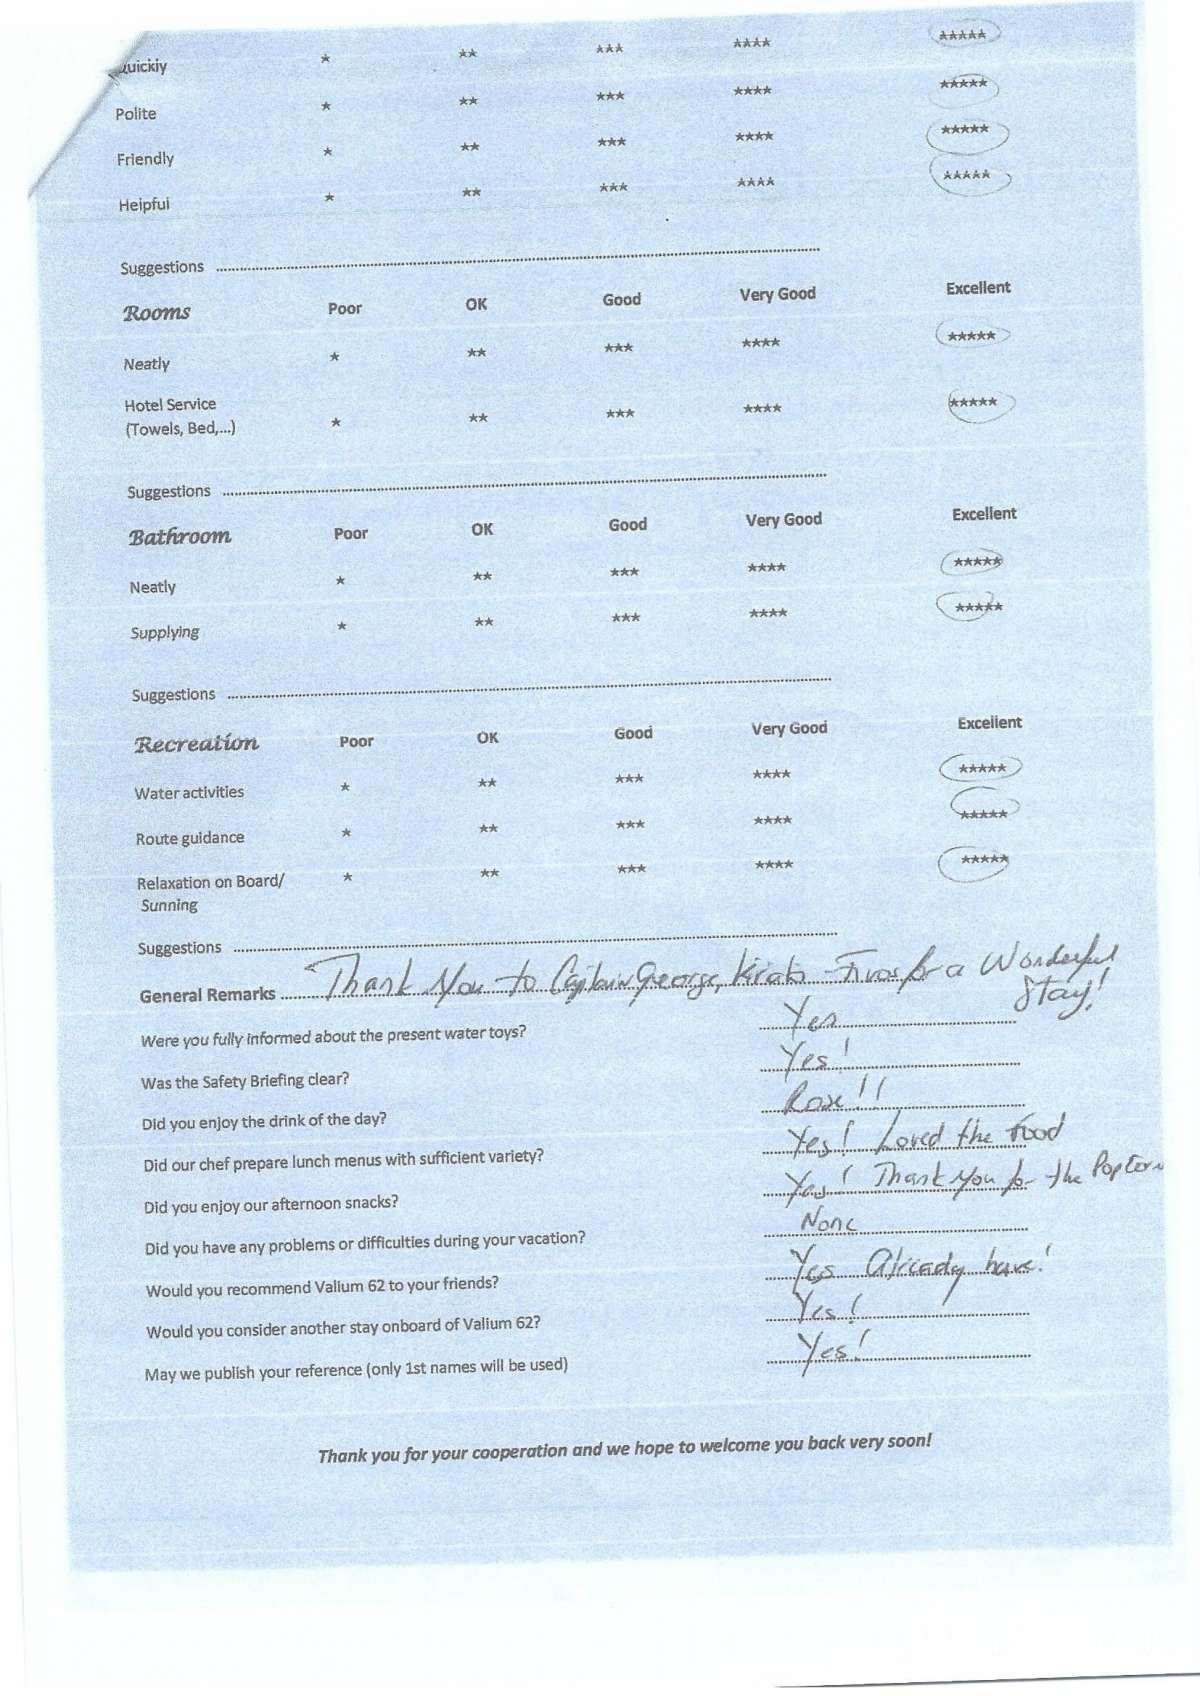 Quickly * ** *** **** *****
Polite * ** *** **** *****
Friendly * ** *** **** *****
Helpful * ** *** **** *****
Suggestions
Rooms Poor OK Good Very Good Excellent
Neatly * ** *** **** *****
Hotel Service
(Towels, Bed,...) * ** *** **** *****
Suggestions
Bathroom Poor OK Good Very Good Excellent
Neatly * ** *** **** *****
Supplying * ** *** **** *****
Suggestions
Recreation Poor OK Good Very Good Excellent
Water activities * ** *** **** *****
Route guidance * ** *** **** *****
Relaxation on Board/ * ** *** **** *****
Sunning
Suggestions
General Remarks Thank You to Captain George, for a Wonderful
Stay!
Were you fully informed about the present water toys? Yes
Was the Safety Briefing clear? Yes!
Did you enjoy the drink of the day? Rose!!
Did our chef prepare lunch menus with sufficient variety? Yes! Loved the Food
Did you enjoy our afternoon snacks? Yes! Thank You for the
Did you have any problems or difficulties during your vacation? None
Would you recommend Valium 62 to your friends? Yes Already have!
Would you consider another stay onboard of Valium 62? Yes!
May we publish your reference (only 1st names will be used) Yes!
Thank you for your cooperation and we hope to welcome you back very soon!